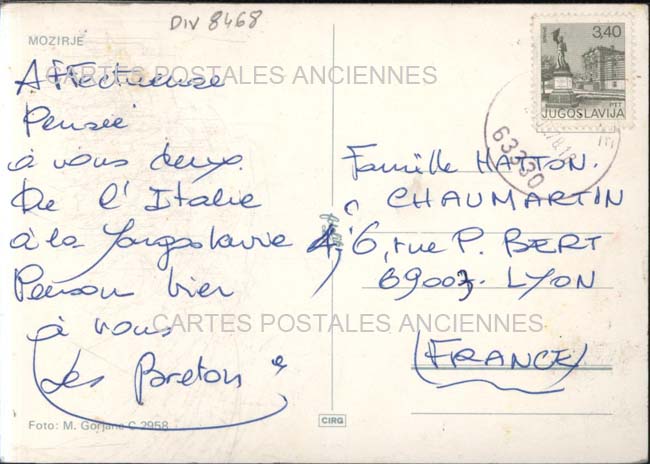 DIV 8468
MOZIRJE
CARTES POSTALES ANCIENNES
Affectueuse
Pensée
à vous deux.
De l'Italie
à la Yougoslavie
Pensons bien
à vous
Les Breton
3,40
PTT
JUGOSLAVIJA
63330
Famille HATTON.
CHAUMARTIN
4, 6, rue P. BERT
69003. LYON
CARTES POSTALES ANCIENNES
(FRANCE)
Foto: M. Gorjanc C 2958
CIRG